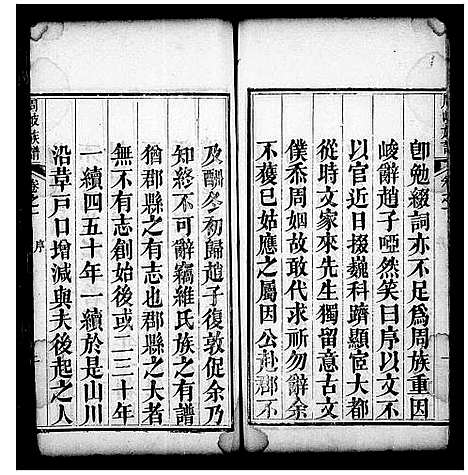 卽勉綴詞亦不足爲周族重因
峻辭趙子啞然笑曰序以文不
以官近日掇巍科躋顯宦大都
從時文家來先生獨留意古文
僕忝周姻故敢代求祈勿辭余
不獲已姑應之屬因公赴郡不
及酬冬初歸趙子復敦促余乃
知終不可辭竊維氏族之有譜
猶郡縣之有志也郡縣之大者
無不有志創始後或二三十年
一續四五十年一續於是山川
沿革戶口增減與夫後起之人
族譜
卷之一
序